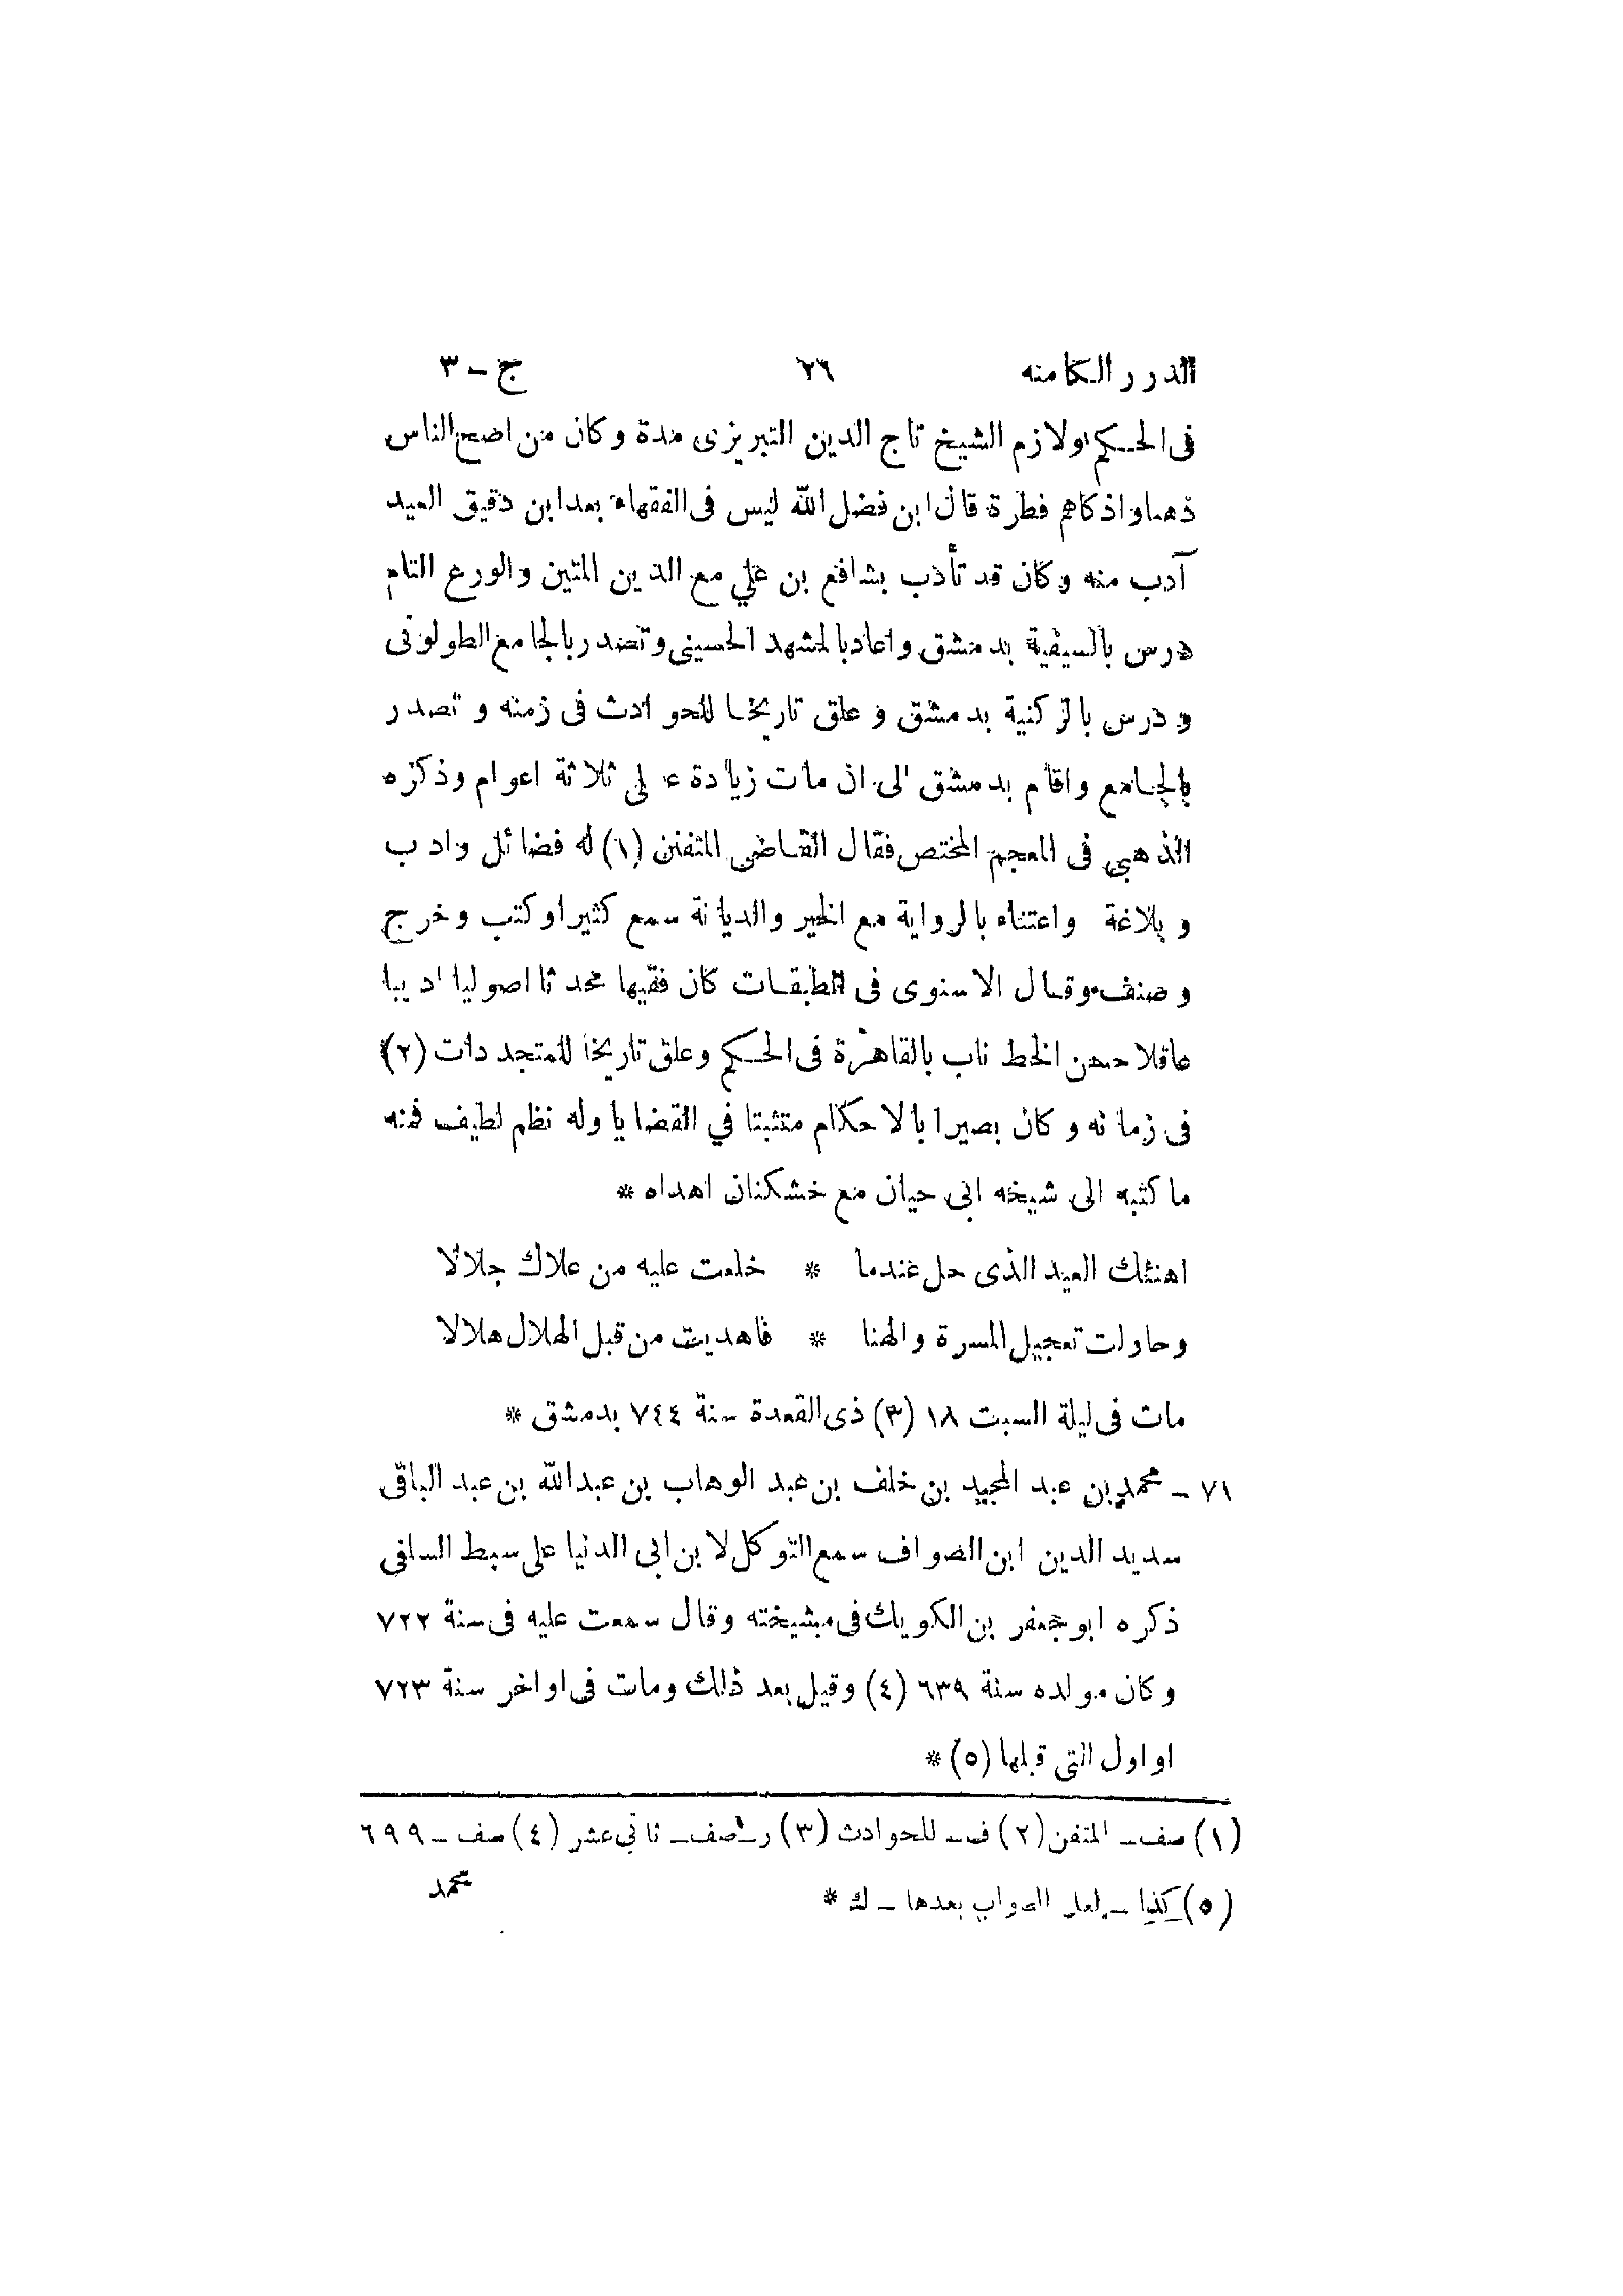 الدرر الكامنه ٢٦ ج - ٣
فى الحكم ولازم الشيخ تاج الدين التبريزى مدة وكان من اصح الناس
ذهنا واذكاهم فطرة قال ابن فضل الله ليس فى الفقهاء بعد ابن دقيق العيد
آدب منه وكان قد تأدب بشافع بن علي مع الدين المتين والورع التام
درس بالسيفية بدمشق واعاد بالمشهد الحسينى وتصدر بالجامع الطولونى
ودرس بالركنية بدمشق وعلق تاريخا للحوادث فى زمنه وتصدر
بالجامع واقام بدمشق الى ان مات زيادة على ثلاثة اعوام وذكره
الذهبي فى المعجم المختص فقال القاضى المتفنن (١) له فضائل وادب
وبلاغة واعتناء بالرواية مع الخير والديانة سمع كثيرا وكتب وخرج
وصنف وقال الاسنوى فى الطبقات كان فقيها محدثا اصوليا اديبا
عاقلا حسن الخط ناب بالقاهرة فى الحكم وعلق تاريخا للمتجددات (٢)
فى زمانه وكان بصيرا بالاحكام متثبتا في القضايا وله نظم لطيف فمنه
ما كتبه الى شيخه ابى حيان مع خشكنان اهداه *
اهنئك العيد الذى حل عندما * خلعت عليه من علاك جلالا
وحاولت تعجيل المسرة والهنا * فاهديت من قبل الهلال هلالا
مات فى ليلة السبت ١٨ (٣) ذى القعدة سنة ٧٤٤ بدمشق *
٧١ - محمد بن عبد المجيد بن خلف بن عبد الوهاب بن عبدالله بن عبد الباقى
سديد الدين ابن الصواف سمع التوكل لا بن ابى الدنيا على سبط السلفى
ذكره ابو جعفر بن الكويك فى مشيخته وقال سمعت عليه فى سنة ٧٢٢
وكان مولده سنة ٦٣٩ (٤) وقيل بعد ذلك ومات فى اواخر سنة ٧٢٣
او اول التى قبلها (٥) *
(١) صف - المتفن (٢) ف - للحوادث (٣) ر - صف - ثاني عشر (٤) صف - ٦٩٩
(٥) كذا - لعل الصواب بعدها - ك *
محمد